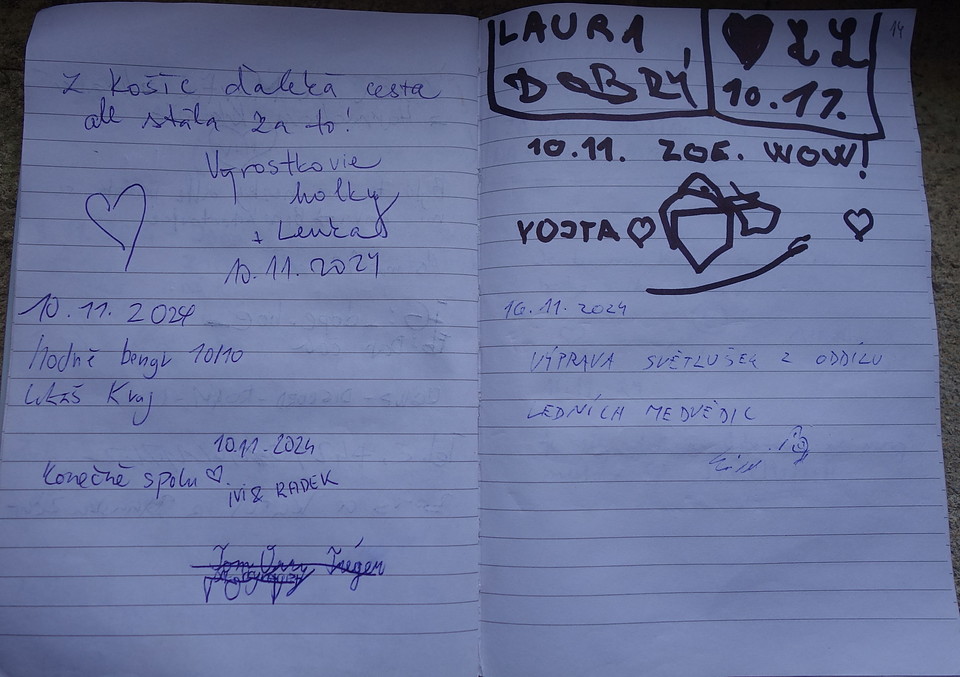 Z Košíc ďaleká cesta
ale stála za to!
Vyrostkovie
holky
+ Lenka
10.11.2024
10.11.2024
Hodně bengr 10/10
Lukáš Kraj
10.11.2024
Konečně spolu ♡.
IVI & RADEK
Tom
LAURA
DOBRÝ
♥
10.11.
14
10.11. ZOE. WOW!
VOJTA ♡ ♡
10.11.2024
VÝPRAVA SVĚTLUŠEK Z ODDÍLU
LEDNÍCH MEDVĚDIC